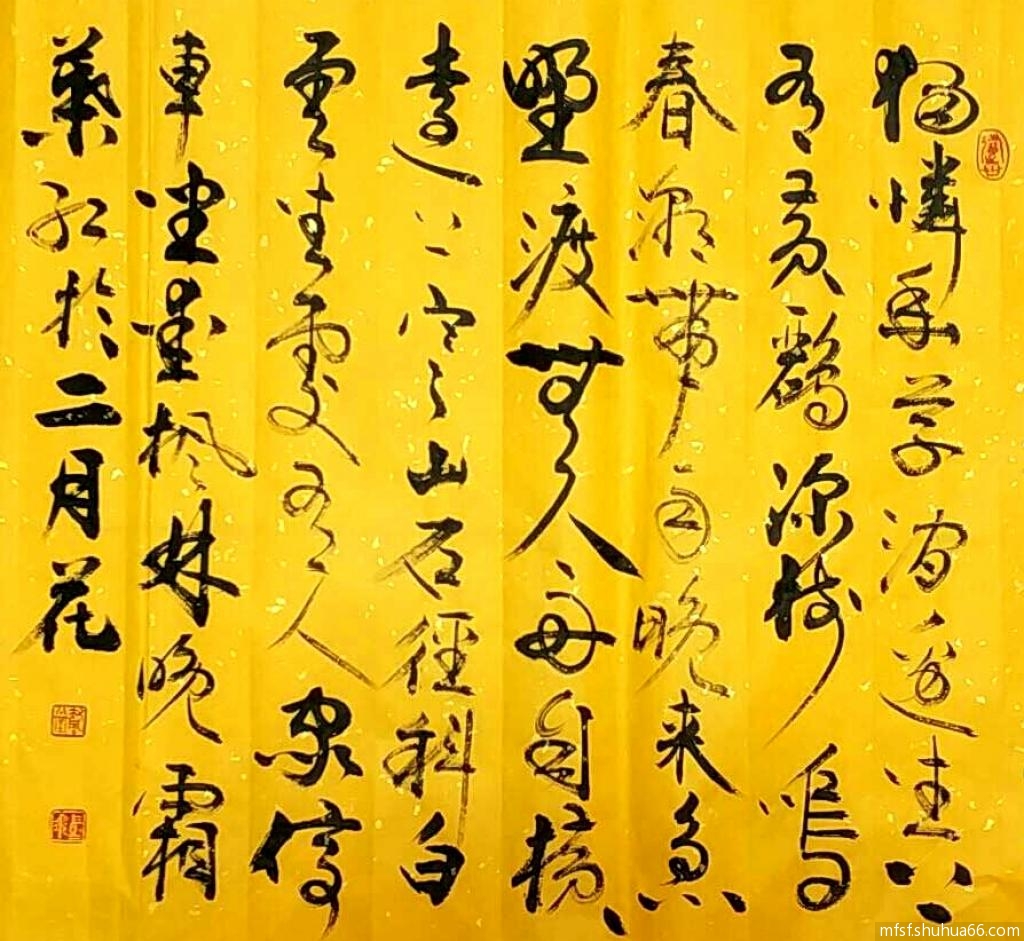 獨憐幽草澗邊生上
有黃鸝深樹鳴
春潮帶雨晚来急
野渡無人舟自横
遠上寒山石徑斜白
雲生處有人家停
車坐愛楓林晚霜
葉红於二月花
mfsf.shuhua66.com